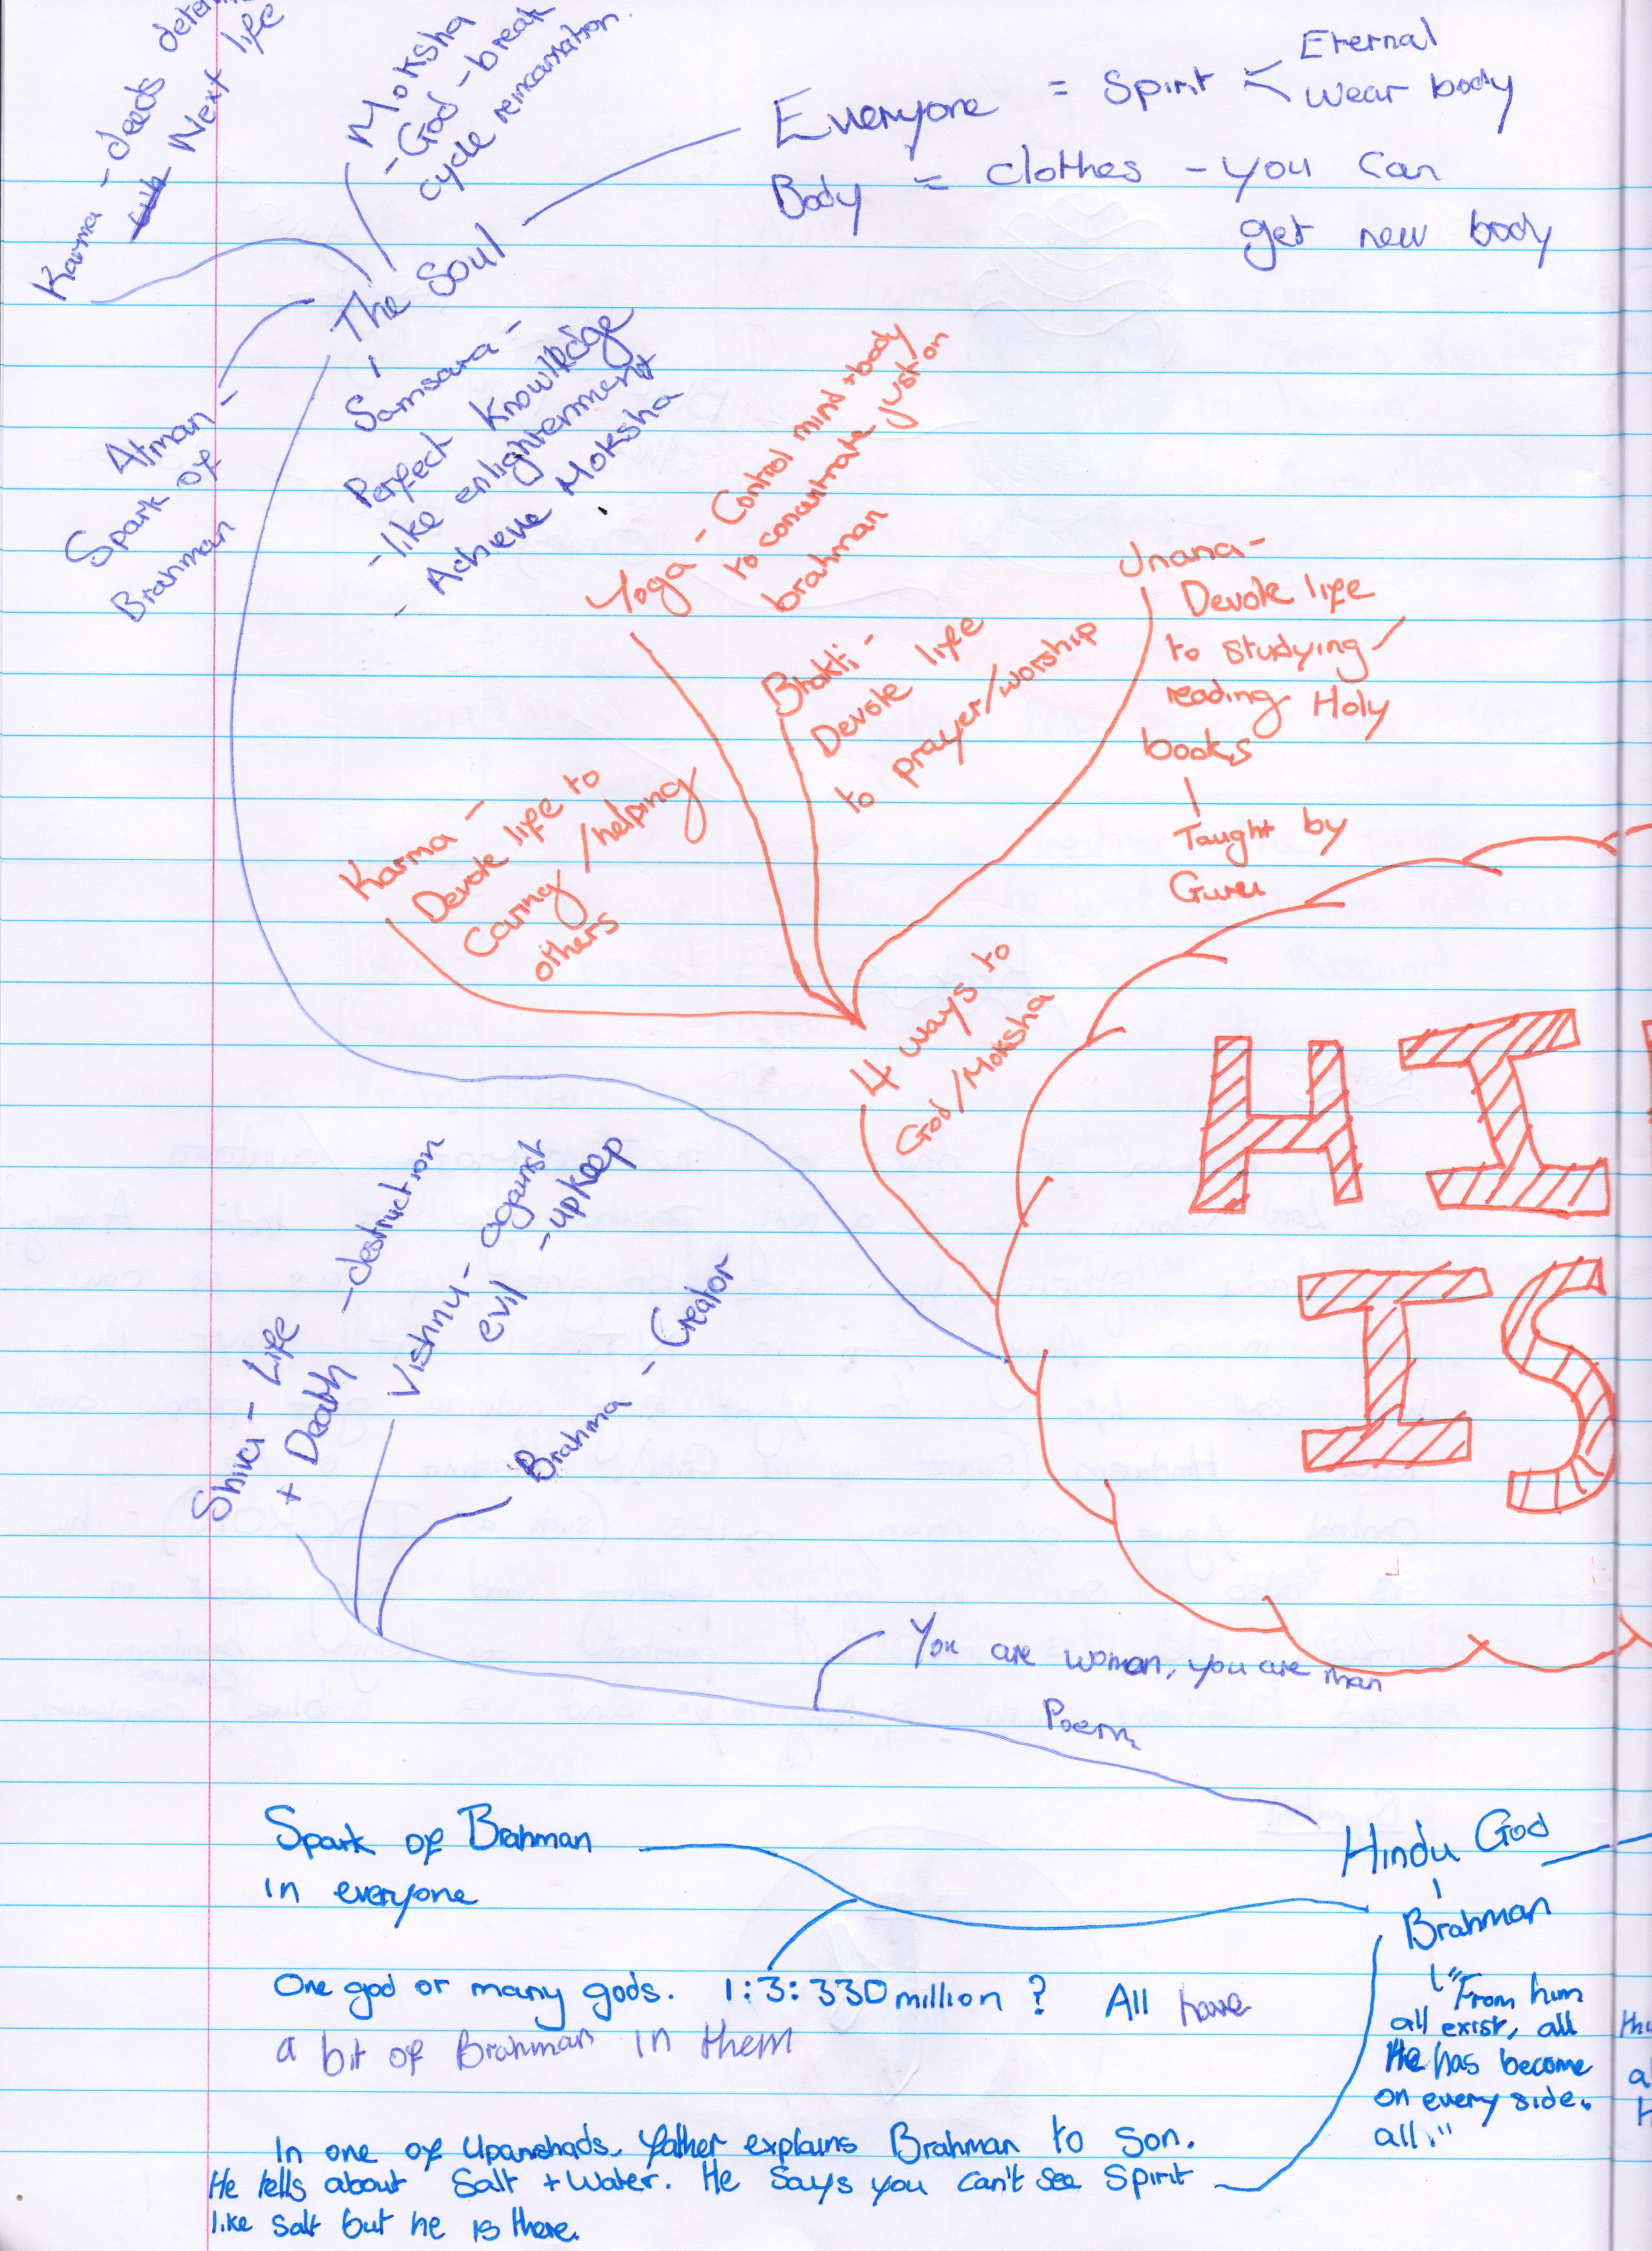 Karma - deeds
Next life
Moksha
- God - break
cycle reincarnation.
Everyone = Spirit < Eternal
wear body
Body = clothes - you can
get new body
The Soul
Atman -
Spark of
Brahman
Samsara -
Perfect Knowledge
- like enlightenment
- Achieve Moksha
Yoga - Control mind + body
to concentrate just on
brahman
Bhakti -
Devote life
to prayer/worship
Jnana -
Devote life
to studying/
reading Holy
books
Taught by
Guru
Karma -
Devote life to
Caring/helping
others
4 ways to
God/Moksha
HI
IS
Shiva - Life - destruction
+ Death
Vishnu - against
evil - upkeep
Brahma - Creator
You are woman, you are man
Poem
Hindu God
Spark of Brahman
in everyone
Brahman
One god or many gods. 1:3:330 million ? All have
a bit of Brahman in them
"From him
all exist, all
He has become
on every side.
all."
In one of Upanshads, father explains Brahman to son.
He tells about Salt + Water. He says you can't see Spirit
like salt but he is there.